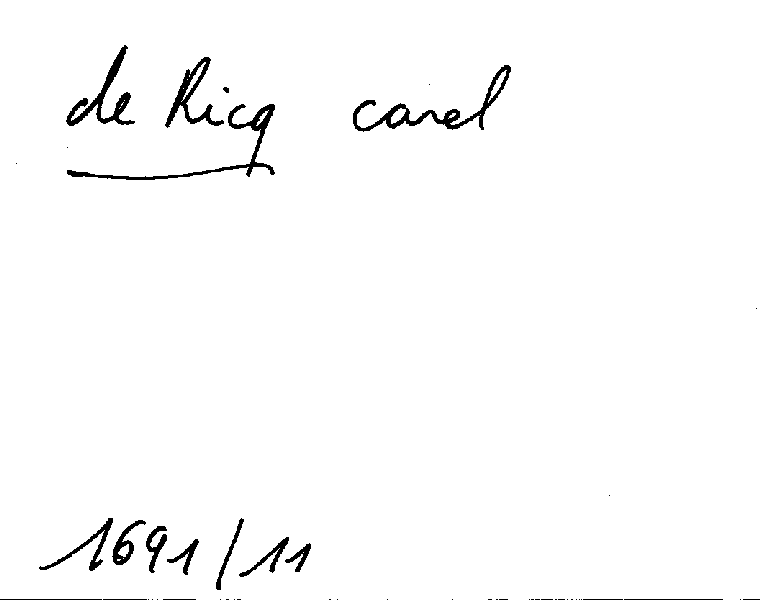 de Ricq carel
1691/11